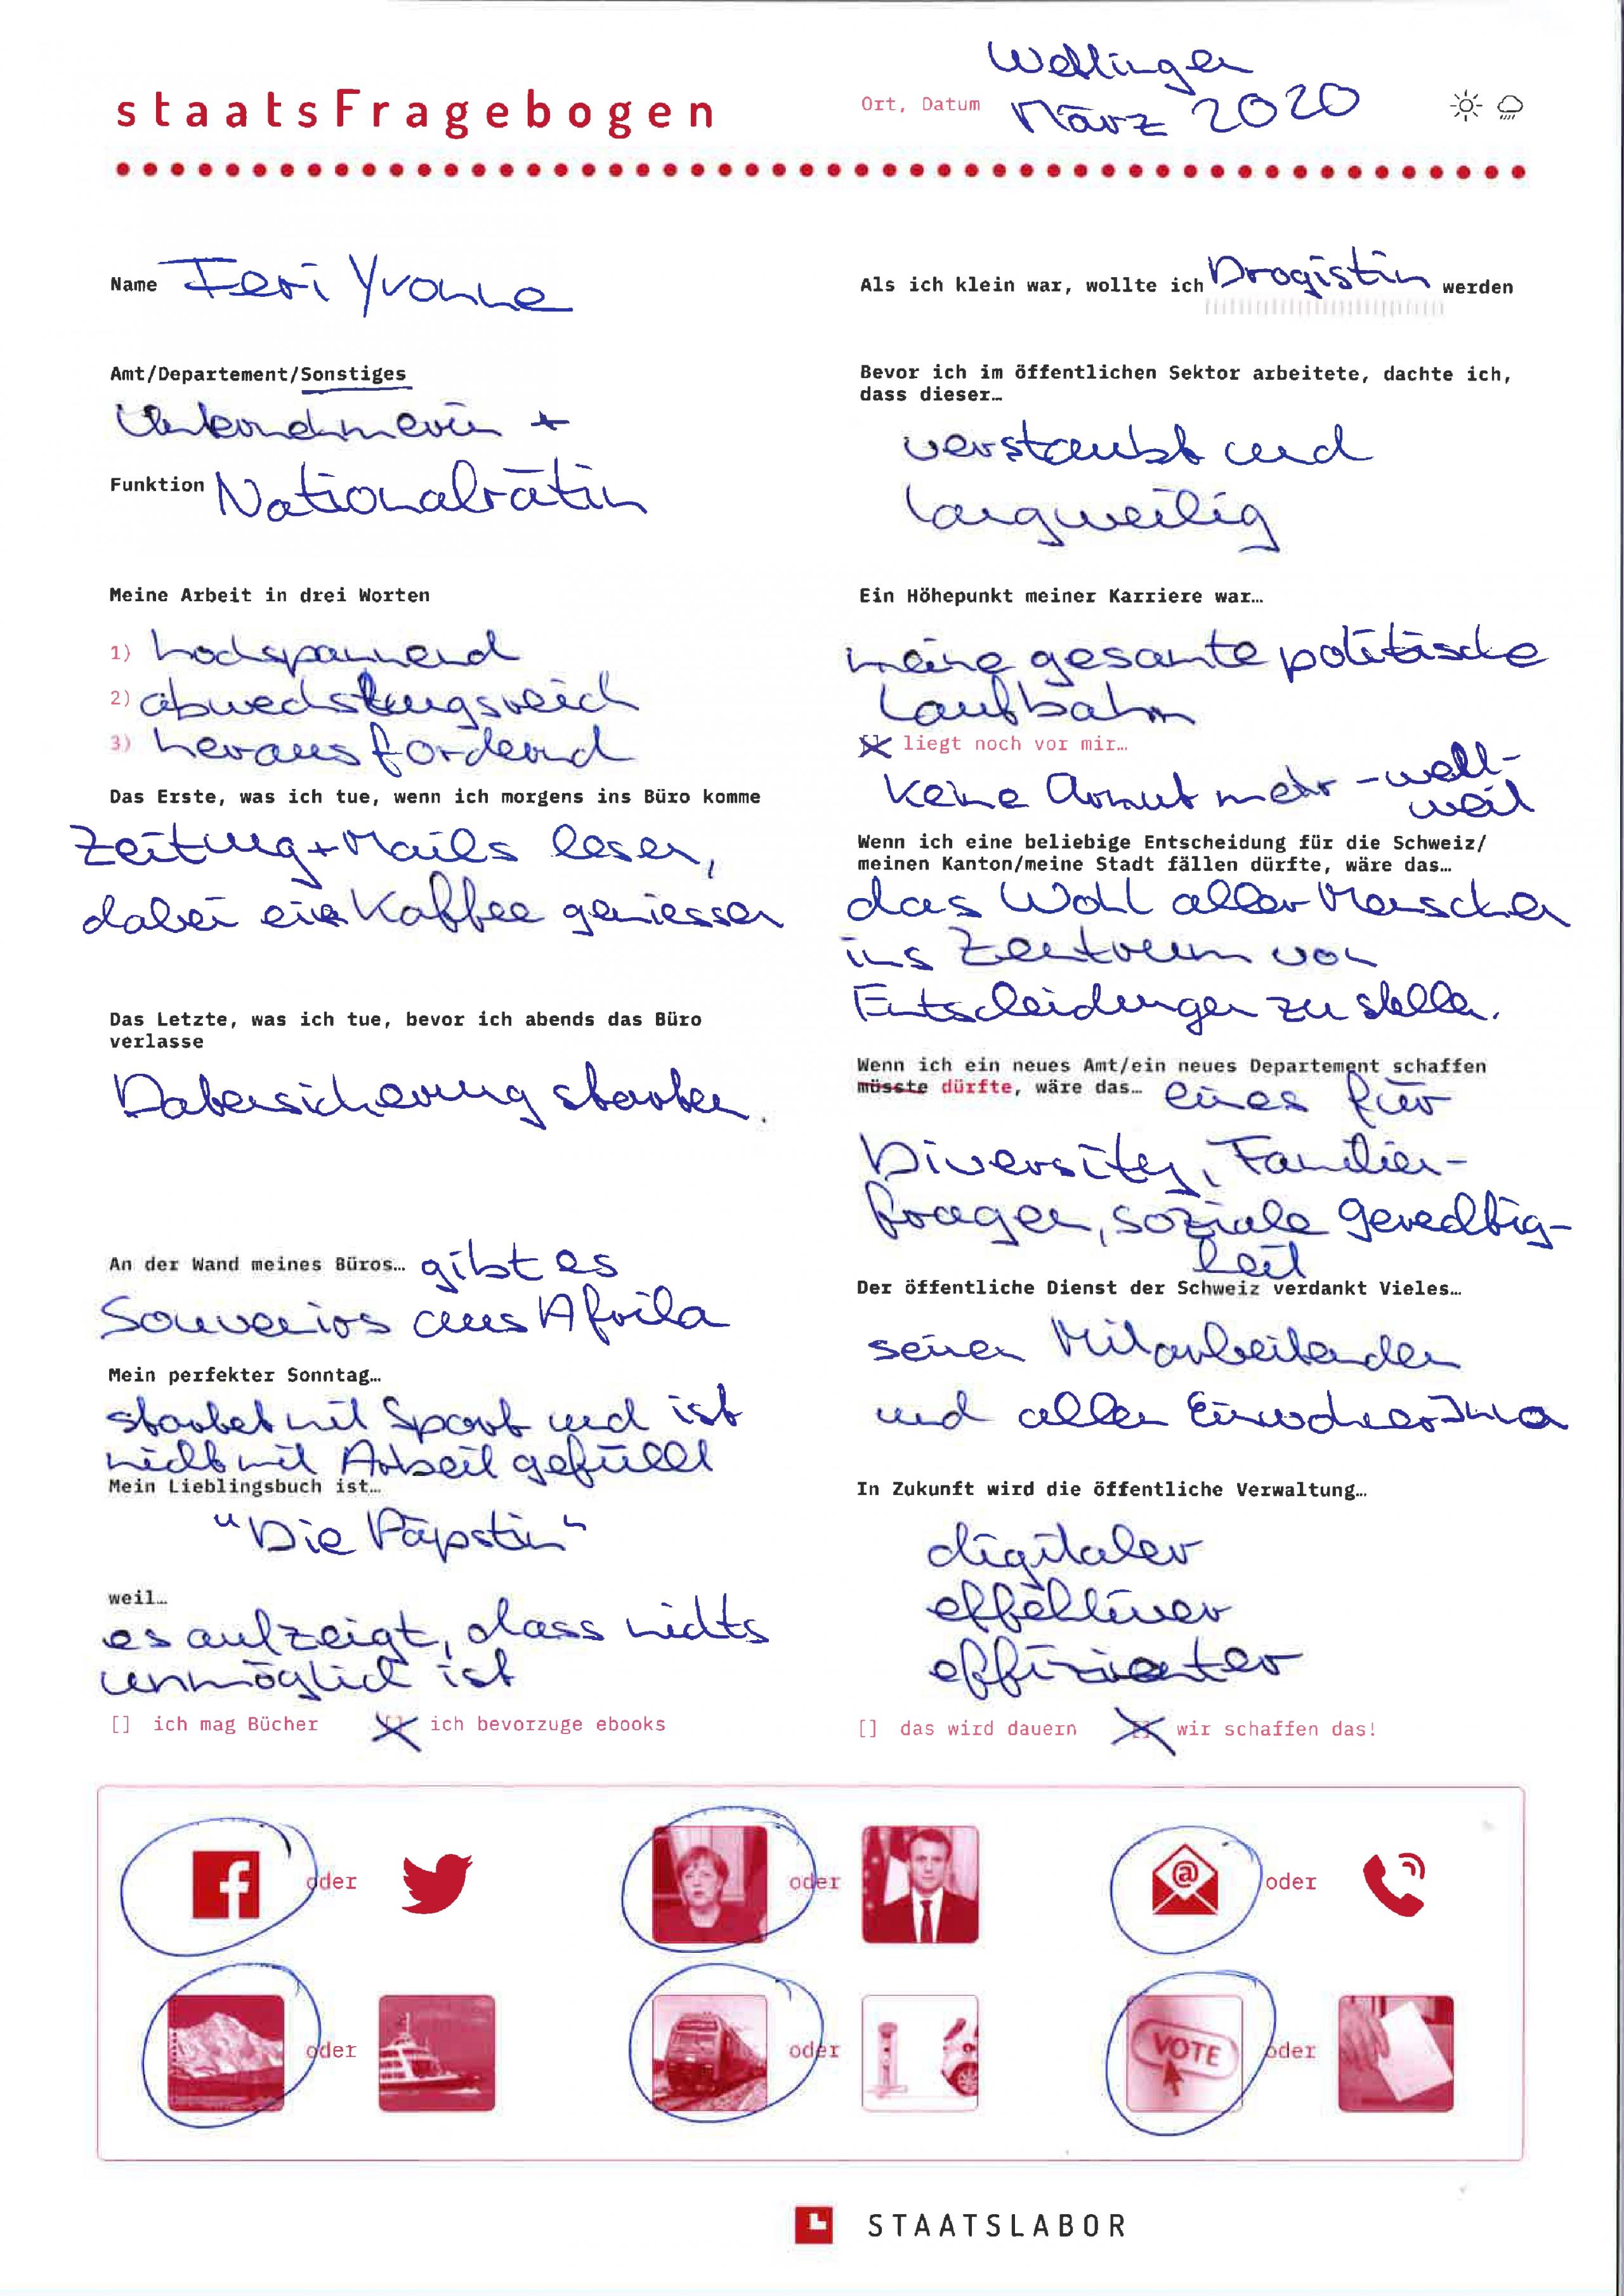 staatsFragebogen
Ort, Datum
Wettingen
März 2020
Name Feri Yvonne
Amt/Departement/Sonstiges
Unternehmerin +
Funktion Nationalrätin
Meine Arbeit in drei Worten
1) hochspannend
2) abwechslungsreich
3) herausfordernd
Das Erste, was ich tue, wenn ich morgens ins Büro komme
Zeitung + Mails lesen,
dabei ein Kaffee geniessen
Das Letzte, was ich tue, bevor ich abends das Büro
verlasse
Datensicherung starten.
An der Wand meines Büros… gibt es
Souvenirs aus Afrika
Mein perfekter Sonntag…
startet mit Sport und ist
nicht mit Arbeit gefüllt
Mein Lieblingsbuch ist…
"Die Päpstin"
weil…
es aufzeigt, dass nichts
unmöglich ist
[] ich mag Bücher [X] ich bevorzuge ebooks
Als ich klein war, wollte ich Drogistin werden
Bevor ich im öffentlichen Sektor arbeitete, dachte ich,
dass dieser…
verstaubt und
langweilig
Ein Höhepunkt meiner Karriere war…
meine gesamte politische
Laufbahn
[X] liegt noch vor mir…
Keine Armut mehr - welt-
weit
Wenn ich eine beliebige Entscheidung für die Schweiz/
meinen Kanton/meine Stadt fällen dürfte, wäre das…
das Wohl aller Menschen
ins Zentrum von
Entscheidungen zu stellen.
Wenn ich ein neues Amt/ein neues Departement schaffen
müsste dürfte, wäre das… eines für
Diversity, Familien-
fragen, soziale Gerechtig-
keit
Der öffentliche Dienst der Schweiz verdankt Vieles…
seinen Mitarbeitenden
und allen EinwohnerInnen
In Zukunft wird die öffentliche Verwaltung…
digitaler
effektiver
effizienter
[] das wird dauern [X] wir schaffen das!
f oder
oder
@ oder
oder
oder
VOTE oder
STAATSLABOR